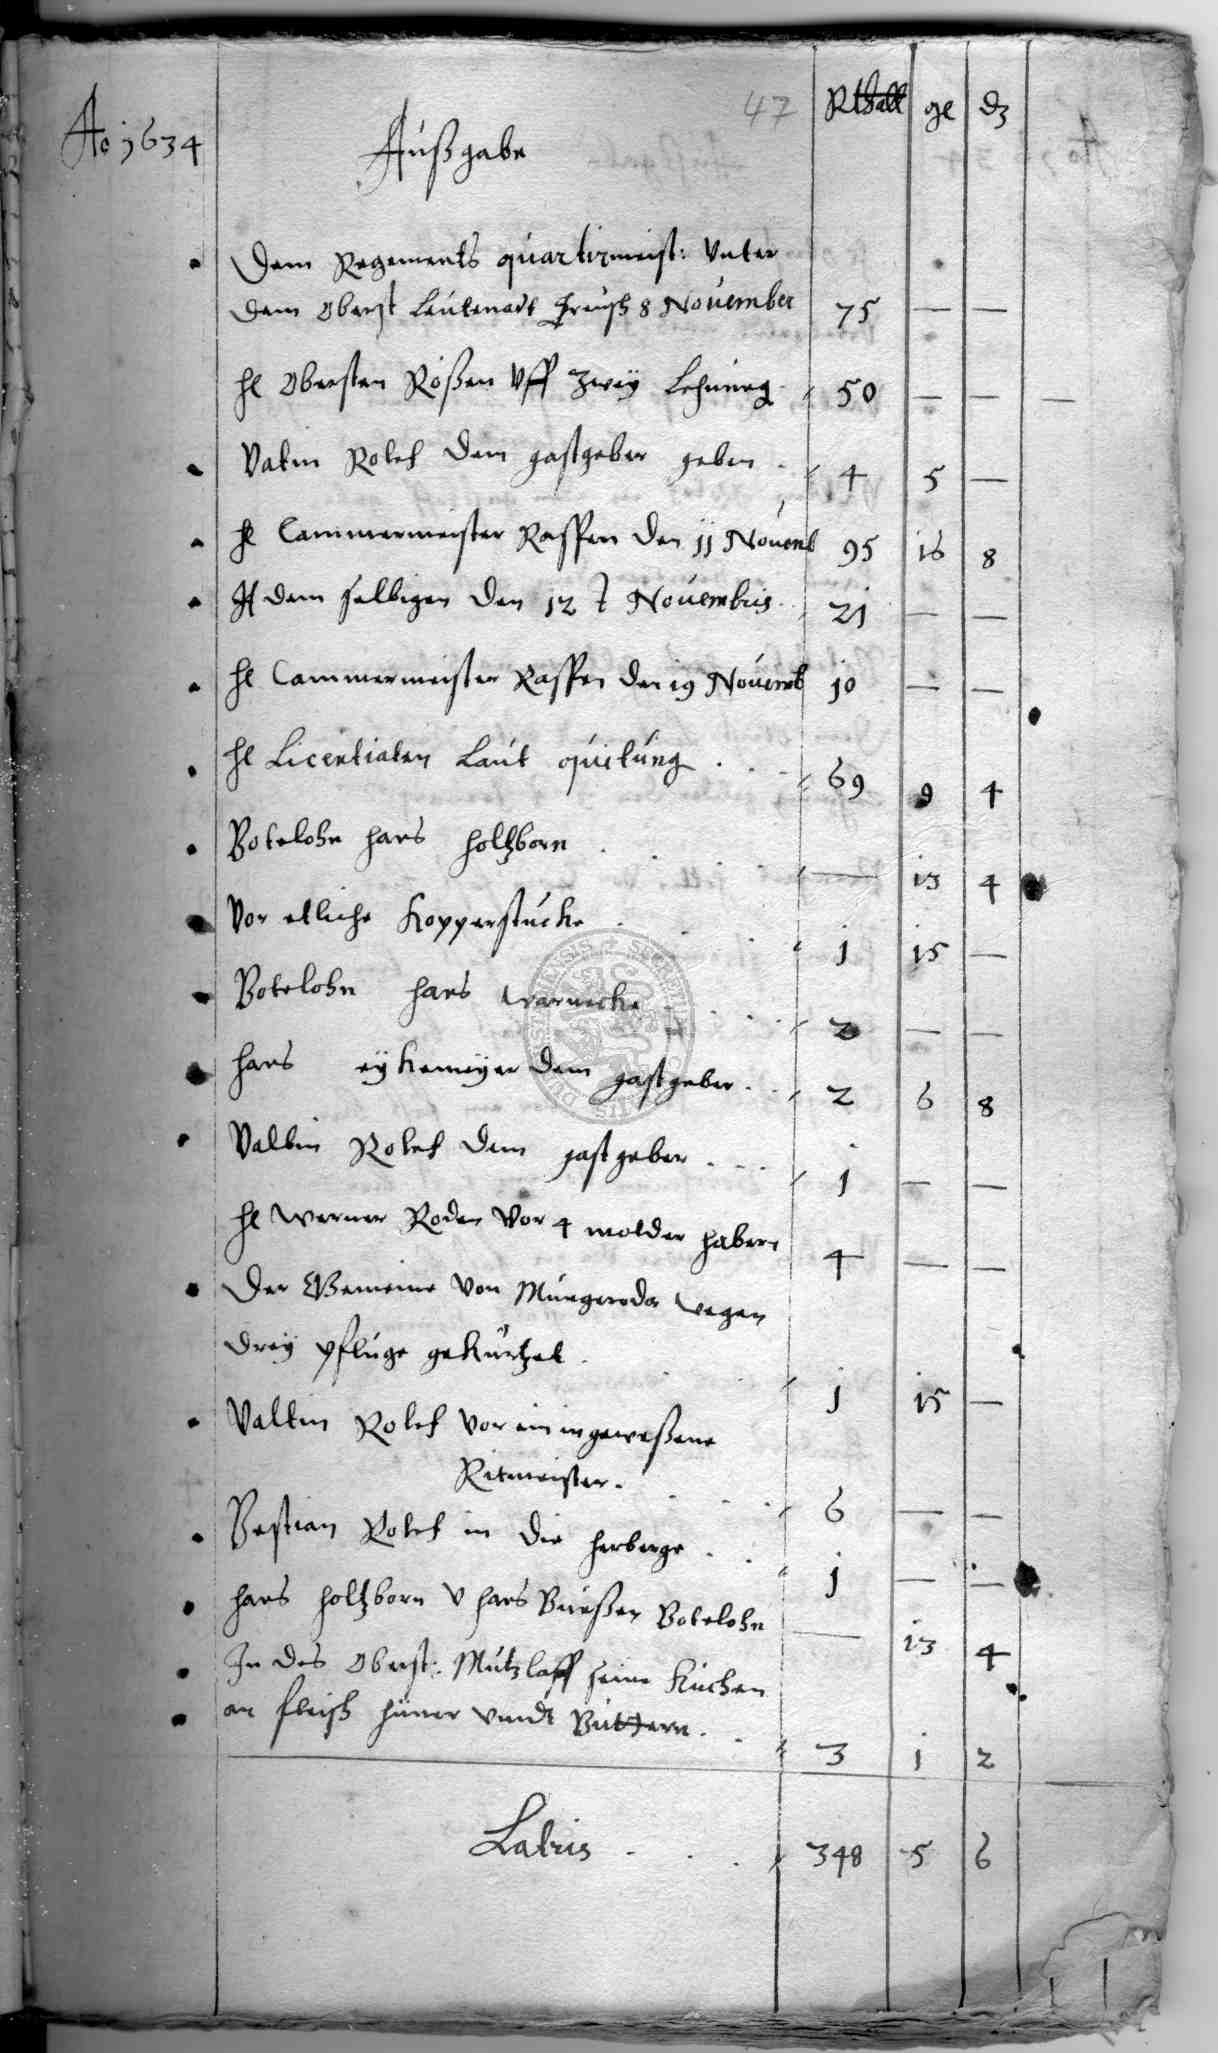 47 Rthall gl d
Ao 1634 Außgabe
Dem Regements quartirmeist: Vnter
dem Oberst Leutenant 8 November 75 — —
hl Obersten Roßen Vff zweÿ Lehnung 50 — — —
Valtin Rolef dem gastgeber geben 4 5 —
hl Cammermeister Raffen den 11 Novemb 95 16 8
It dem selbigen den 12 t Novembris 21 — —
hl Cammermeister Raffen den 19 Novemb 10 — —
hl Licentiaten Laut quitung 69 9 4
Botelohn hans holtzborn — 13 4
Vor etliche Kopperstucke 1 15 —
Botelohn hans warnecke 2 — —
hans eÿkemeÿer dem gastgeber 2 6 8
Valtin Rolef dem gastgeber 1 — —
hl werner Roden Vor 4 molder habern 4 — —
Der Gemeine Von Mungeroda wegen
dreÿ pfluge gekurtzet 1 15 —
Valtin Rolef vor ein ingeweßene
Ritmeister 6 — —
Bestian Rolef in die herberge 1 — —
hans holtzborn V hans Bueßen Botelohn — 13 4
In des Oberst: Mutzlaff seine Kuchen
an fleisch hüner vndt Buttern 3 1 2
Latris 348 5 6